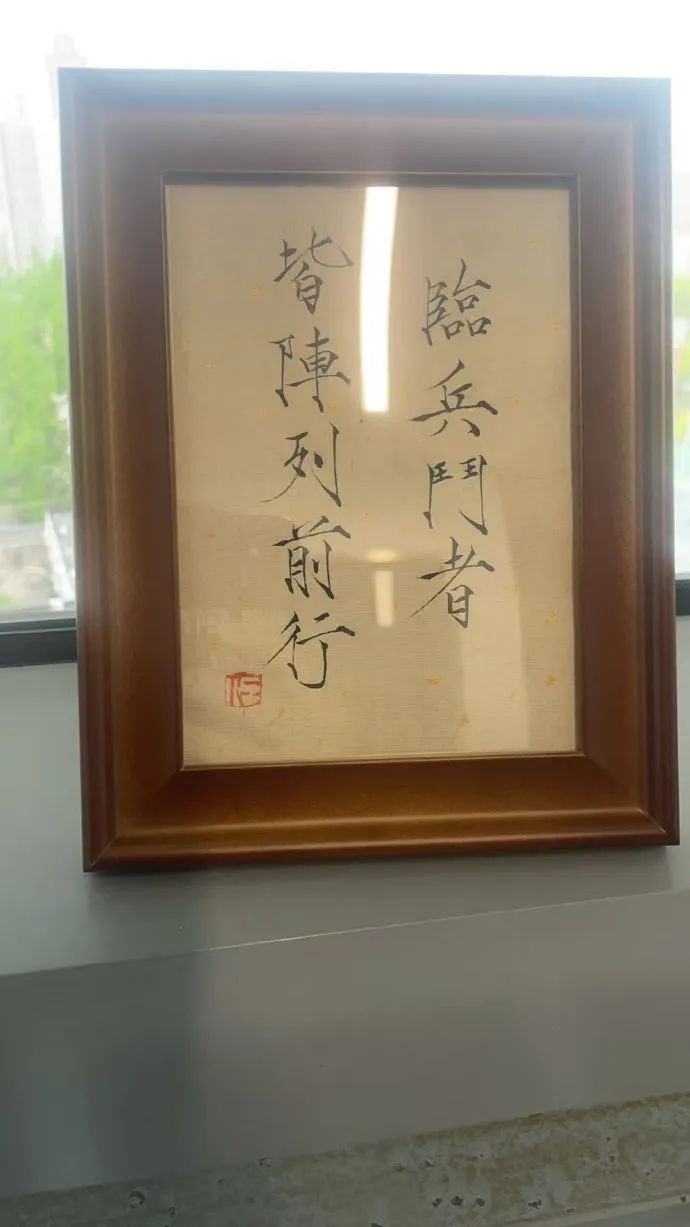 臨兵鬥者
皆陣列前行